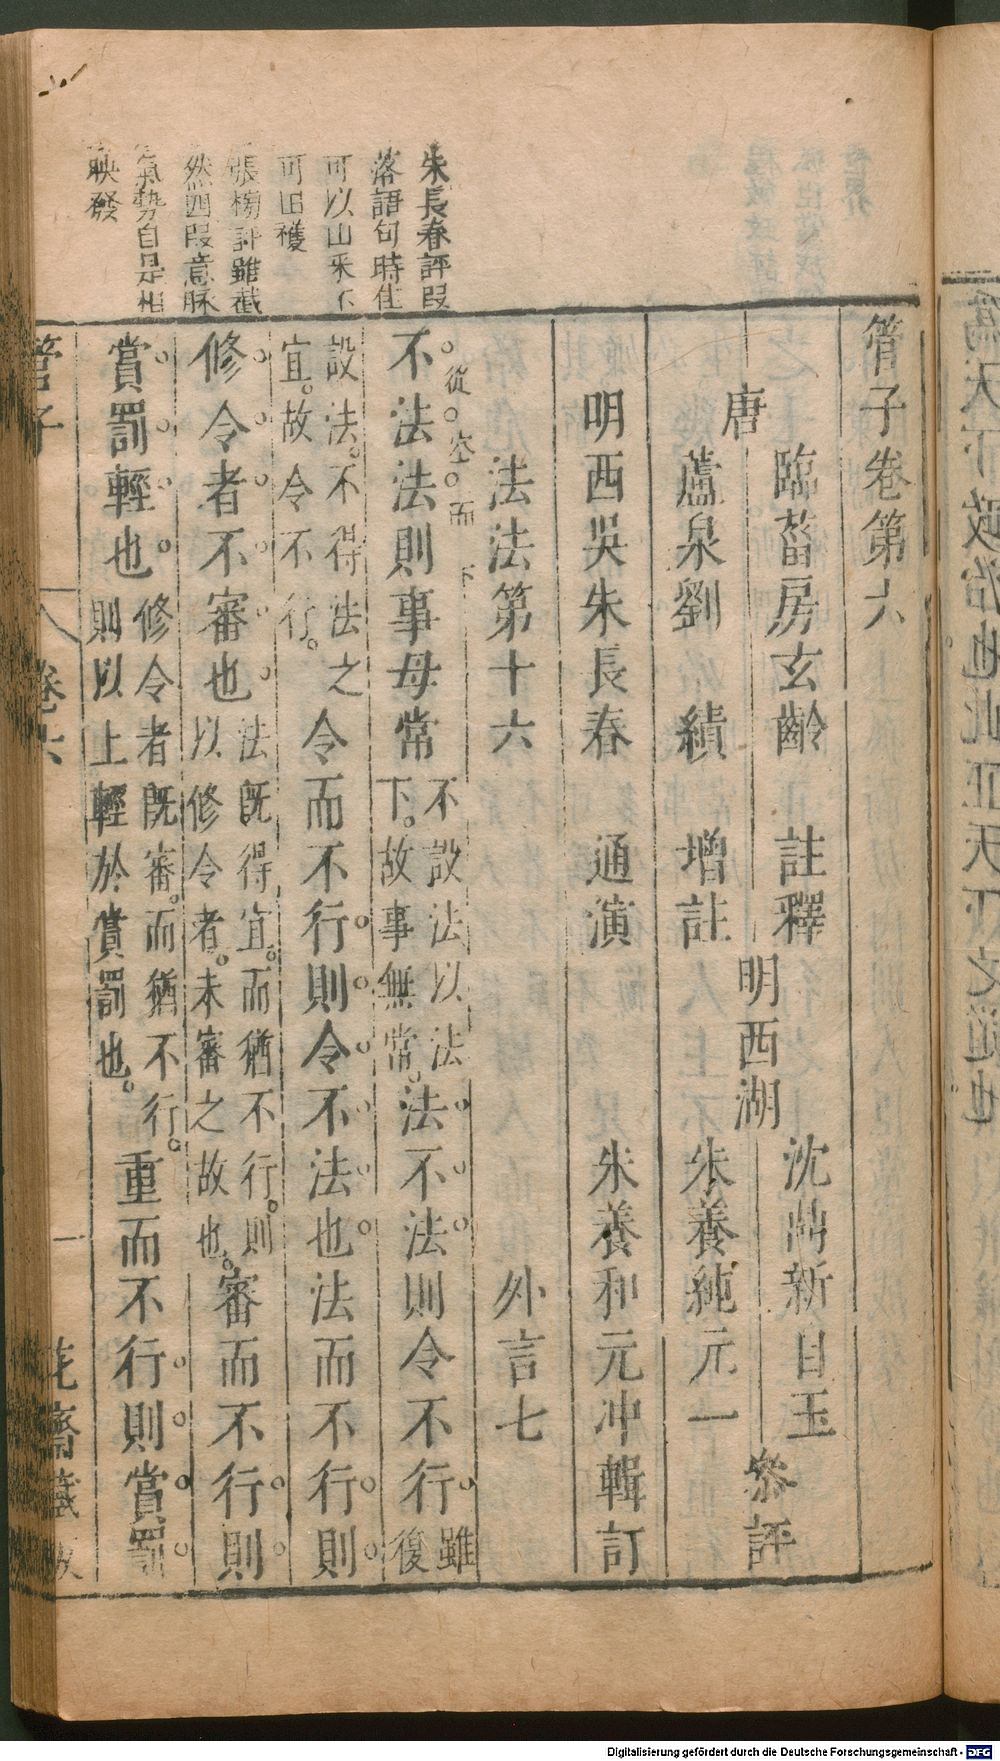 朱長春評叚
落語句時佳
可以山釆不
可田穫
張榜評雖截
然四叚意脉
氣勢自是相
映發
管子卷第六
唐
臨菑房玄齡註釋
蘆泉劉績增註
明西湖
沈鼎新自玉
朱養純元一
參評
明西吳朱長春通演
朱養和元冲輯訂
法法第十六 外言七
從空而下
不法法則事毋常不設法以法
下故事無常法不法則令不行雖復
設法不得法之
宜故令不行令而不行則令不法也法而不行則
修令者不審也法既得宜而猶不行則
以修令者未審之故也審而不行則
賞罰輕也修令者既審而猶不行
則以上輕於賞罰也重而不行則賞罰
管子 卷六 一 花齋藏板
爲天下政治也此正天下之道也
Digitalisierung gefördert durch die Deutsche Forschungsgemeinschaft - DFG